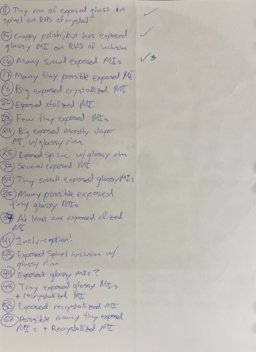 Tiny rim of exposed glass in
spinel on RHS of crystal
Crappy polish, but has exposed
glassy MI on RHS of inclusion
Many small exposed MIs
17 Many tiny possible exposed MI
Big exposed crystallized MI
Exposed xtalized MI
Few tiny exposed MIs
Big exposed mostly vapor
MI w/ glassy rim
Exposed Sp inc. w/ glassy rim
Several exposed MI
Tiny small exposed glassy MIs
Many possible exposed
tiny glassy MIs
At least one exposed xlized
MI
41 Inclu-ception!
Exposed Spinel inclusion w/
glassy rim
Exposed glassy MIs?
Tiny exposed glassy MIs
+ recrystallized MI
Exposed recrystallized MI
Possible many tiny exposed
MIs + Recrystallized MI